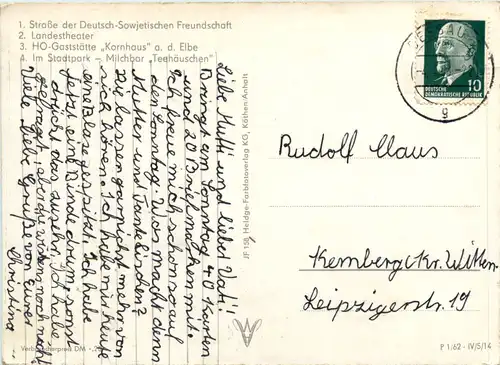 1. Straße der Deutsch-Sowjetischen Freundschaft
2. Landestheater
3. HO-Gaststätte „Kornhaus" a. d. Elbe
4. Im Stadtpark — Milchbar „Teehäuschen"
Liebe Mutti und lieber Vati!
Bringt am Sonntag 40 Karten
und 20 Briefmarken mit.
Ich freue mich schon so auf
den Sonntag. Was macht denn
Mutter und Tante Lischen?
Die lassen gar nicht mehr von
sich hören. Ich habe mir heute
eine Blase gespritzt. Ich habe
jetzt eine Binde drum, sonst
drückt das zu sehr. Ich habe
gefragt,
Viele liebe Grüße von Eurer
Christina
JP 158 Heldge-Farbfotoverlag KG, Köthen/Anhalt
DESSAU
g
DEUTSCHE
DEMOKRATISCHE REPUBLIK
10
Rudolf Claus
Kemberg (Kr. Witten
Leipzigerstr. 19
Verbraucherpreis DM
P 1/62 - IV/5/14